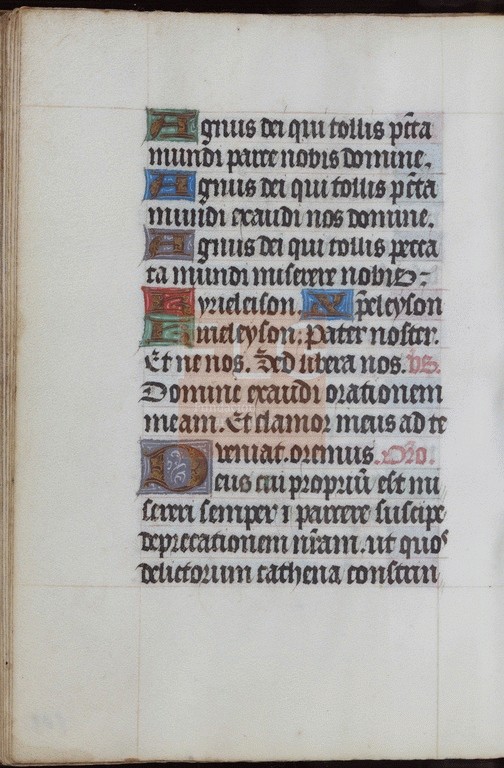 Agnus dei qui tollis pcta
mundi parce nobis domine.
Agnus dei qui tollis pcta
mundi exaudi nos domine.
Agnus dei qui tollis pecca
ta mundi miserere nobis:
Kyrieleison. Xpeleyson
Kirieleyson: Pater noster.
Et ne nos. Sed libera nos. vs.
Domine exaudi orationem
meam. Et clamor meus ad te
veniat. oremus. Oro.
Deus cui propriu est mi
sereri semper ⁊ parcere suscipe
deprecationem nram. ut quos
delictorum cathena constrin